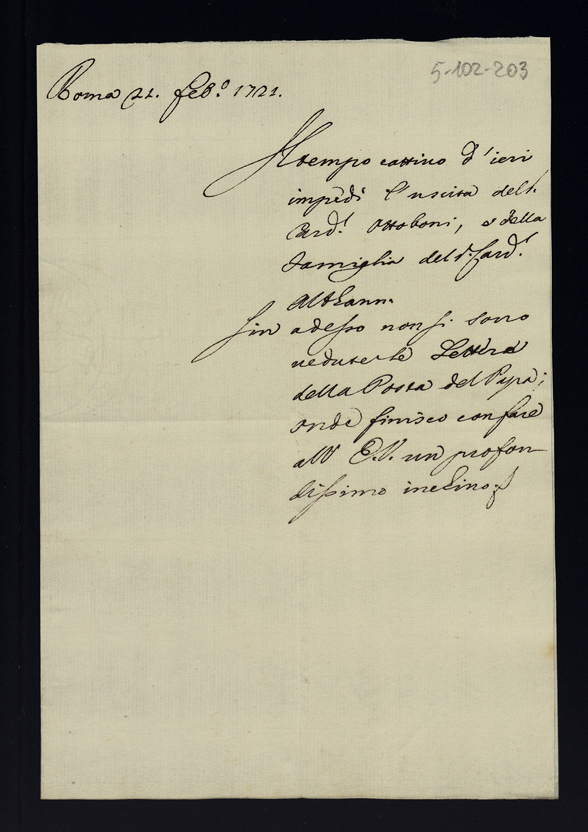 5-102-203
Roma 21. Feb.º 1721.
Il tempo cattivo d'ieri
impedì l'uscita del S.
Card.l Ottoboni, e della
famiglia del S. Card.l
Althann.
Sin adesso non si sono
vedute le Lettere
della Posta del Papa;
onde finisco con fare
all' E.V. un profon
dissimo inchino